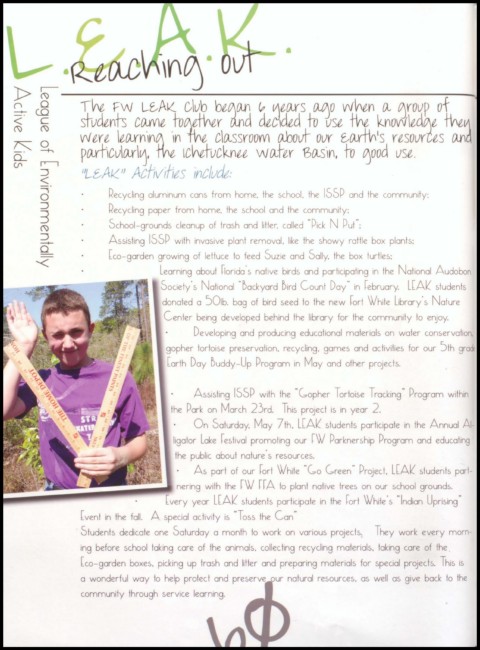 L.E.A.K.
Reaching out
League of Environmentally
Active Kids
The FW LEAK Club began 6 years ago when a group of
students came together and decided to use the knowledge they
were learning in the classroom about our Earth's resources and
particularly, the Ichetucknee Water Basin, to good use.
"LEAK" Activities include:
· Recycling aluminum cans from home, the school, the ISSP and the community;
· Recycling paper from home, the school and the community;
· School-grounds cleanup of trash and litter, called "Pick N Put";
· Assisting ISSP with invasive plant removal, like the showy rattle box plants;
· Eco-garden growing of lettuce to feed Suzie and Sally, the box turtles;
· Learning about Florida's native birds and participating in the National Audobon
Society's National "Backyard Bird Count Day" in February. LEAK students
donated a 50lb. bag of bird seed to the new Fort White Library's Nature
Center being developed behind the library for the community to enjoy.
· Developing and producing educational materials on water conservation,
gopher tortoise preservation, recycling, games and activities for our 5th grad
Earth Day Buddy-Up Program in May and other projects.
· Assisting ISSP with the "Gopher Tortoise Tracking" Program within
the Park on March 23rd. This project is in year 2.
· On Saturday, May 7th, LEAK students participate in the Annual Al-
ligator Lake Festival promoting our FW Parknership Program and educating
the public about nature's resources.
· As part of our Fort White "Go Green" Project, LEAK students part-
nering with the FW FFA to plant native trees on our school grounds.
· Every year LEAK students participate in the Fort White's "Indian Uprising"
Event in the fall. A special activity is "Toss the Can"
Students dedicate one Saturday a month to work on various projects, They work every morn-
ing before school taking care of the animals, collecting recycling materials, taking care of the
Eco-garden boxes, picking up trash and litter and preparing materials for special projects. This is
a wonderful way to help protect and preserve our natural resources, as well as give back to the
community through service learning.